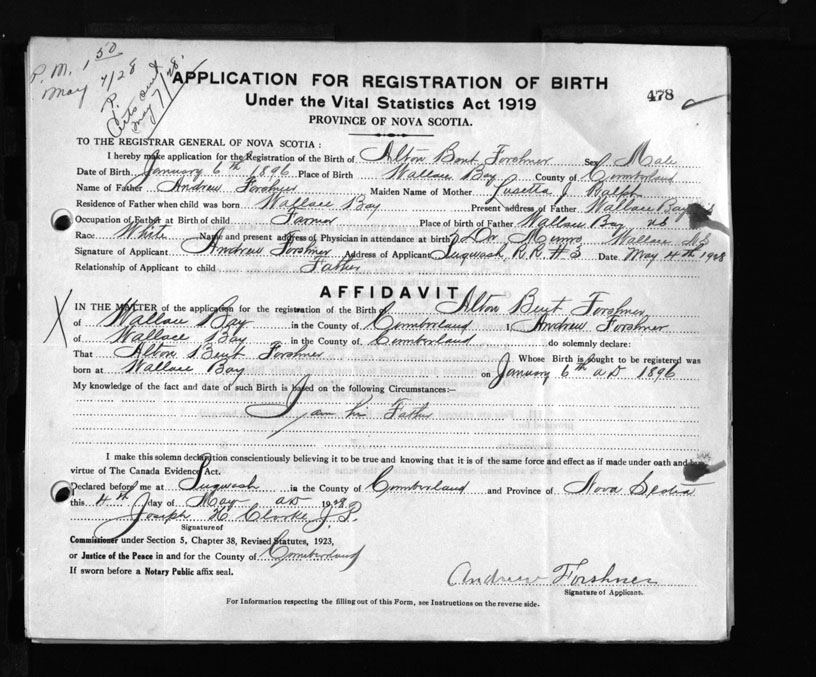 P. M. 1 50
May 4/28
P.
Certs out
May 7/28.
APPLICATION FOR REGISTRATION OF BIRTH
478
Under the Vital Statistics Act 1919
PROVINCE OF NOVA SCOTIA.
TO THE REGISTRAR GENERAL OF NOVA SCOTIA :
I hereby make application for the Registration of the Birth of Alton Bent Forshner Sex Male
Date of Birth January 6th 1896 Place of Birth Wallace Bay County of Cumberland
Name of Father Andrew Forshner Maiden Name of Mother Lusetta J.
Residence of Father when child was born Wallace Bay Present address of Father Wallace Bay
Occupation of Father at Birth of child Farmer Place of birth of Father Wallace Bay NS
Race White Name and present address of Physician in attendance at birth Dr Munro Wallace NS
Signature of Applicant Andrew Forshner Address of Applicant Pugwash R.R #3 Date May 4th 1928
Relationship of Applicant to child Father
AFFIDAVIT
X
IN THE MATTER of the application for the registration of the Birth of Alton Bent Forshner
of Wallace Bay in the County of Cumberland I, Andrew Forshner
of Wallace Bay in the County of Cumberland do solemnly declare:
That Alton Bent Forshner Whose Birth is sought to be registered was
born at Wallace Bay on January 6th AD 1896
My knowledge of the fact and date of such Birth is based on the following Circumstances:—
I am his Father
I make this solemn declaration conscientiously believing it to be true and knowing that it is of the same force and effect as if made under oath and by
virtue of The Canada Evidence Act.
Declared before me at Pugwash in the County of Cumberland and Province of Nova Scotia
this 4th day of May AD 1928
Joseph H Clarke J.P.
Signature of
Commissioner under Section 5, Chapter 38, Revised Statutes, 1923,
or Justice of the Peace in and for the County of Cumberland
If sworn before a Notary Public affix seal.
Andrew Forshner
Signature of Applicant.
For Information respecting the filling out of this Form, see Instructions on the reverse side.